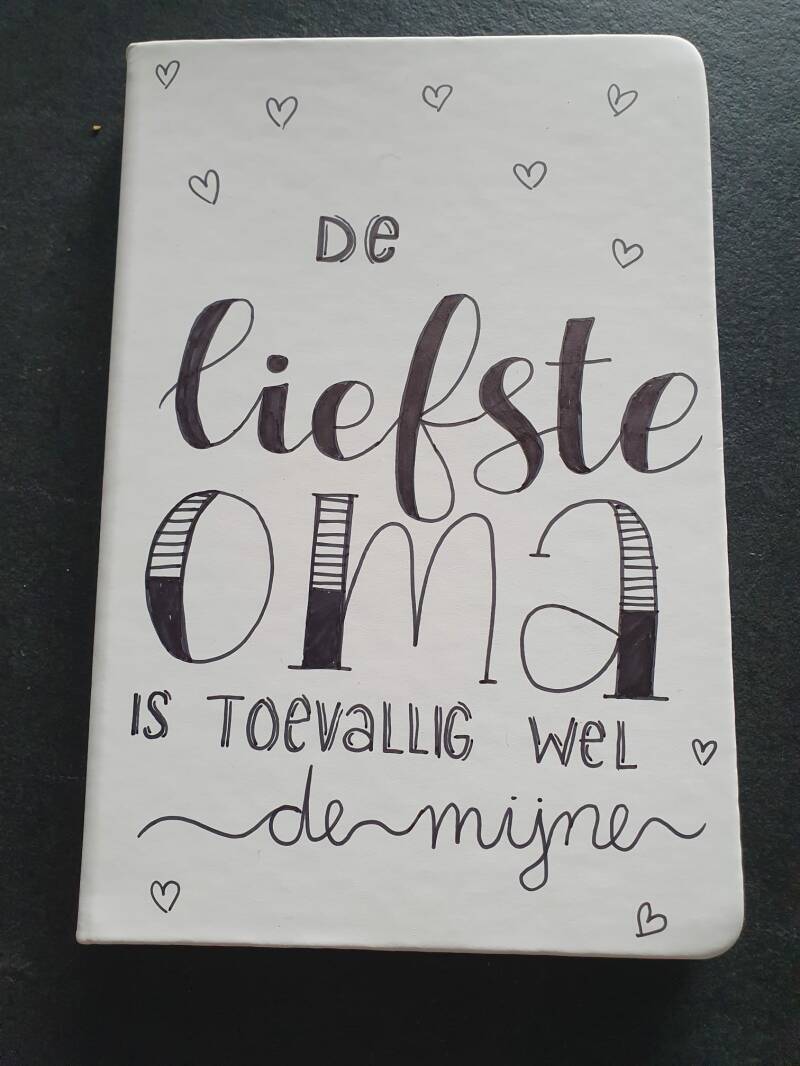 De
liefste
oma
is toevallig wel
de mijne